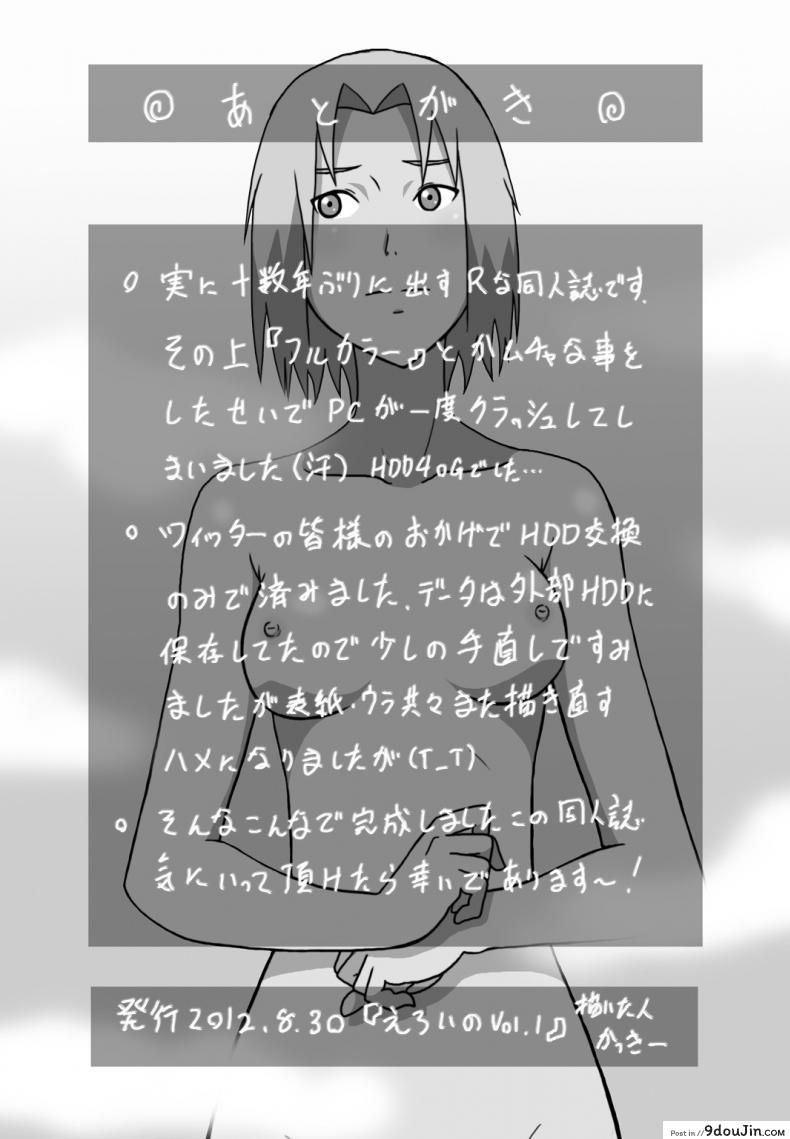 あとがき
実に十数年ぶりに出すRな同人誌です.
その上『フルカラー』とかムチャな事を
したせいでPCが一度クラッシュしてし
まいました(汗) HDD40Gでした…
ツイッターの皆様のおかげでHDD交換
のみで済みました.データは外部HDDに
保存してたので少しの手直しですみ
ましたが表紙・ウラ共々また描き直す
ハメになりましたが(T_T)
そんなこんなで完成しましたこの同人誌
気にいって頂けたら幸いであります〜!
発行2012.8.30『えろいのVol.1』
描いた人
かっきー
Post in // 9douJin.com